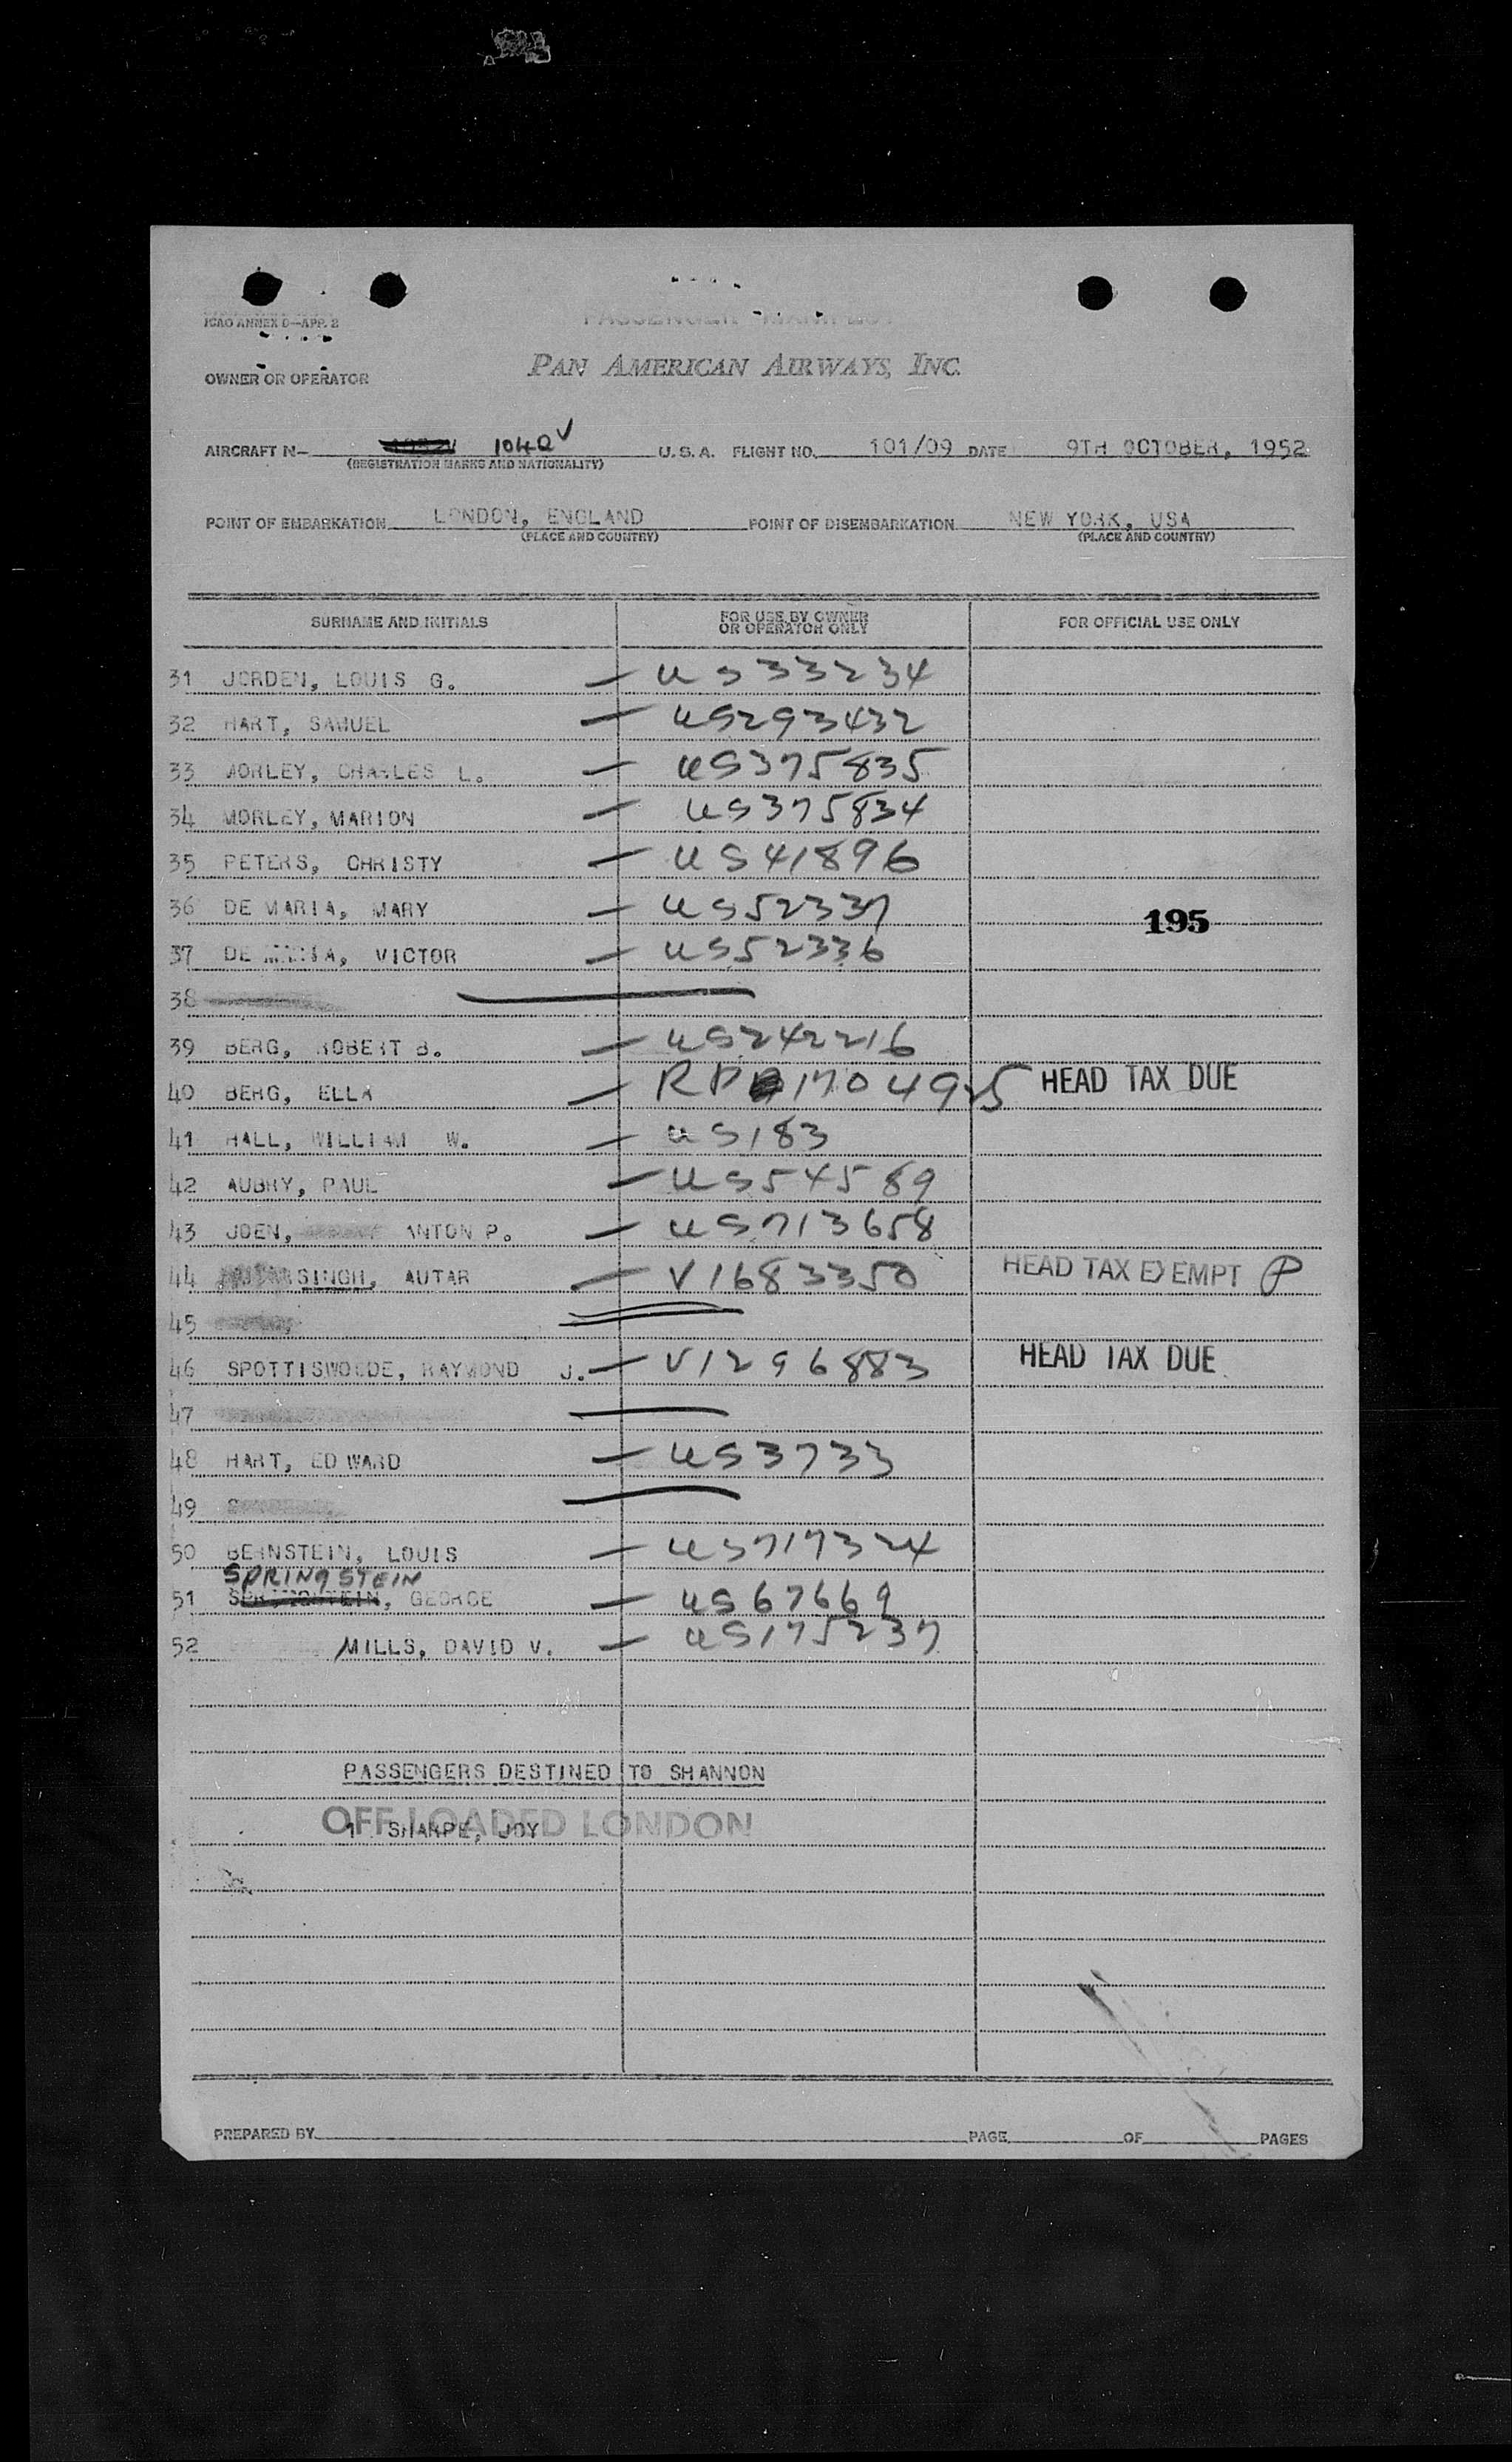 ICAO ANNEX 9—APP. 2
PASSENGER MANIFEST
OWNER OR OPERATOR PAN AMERICAN AIRWAYS, INC.
AIRCRAFT N- 1040V U. S. A. FLIGHT NO. 101/09 DATE 9TH OCTOBER, 1952
(REGISTRATION MARKS AND NATIONALITY)
POINT OF EMBARKATION LONDON, ENGLAND POINT OF DISEMBARKATION NEW YORK, USA
(PLACE AND COUNTRY) (PLACE AND COUNTRY)
SURNAME AND INITIALS FOR USE BY OWNER OR OPERATOR ONLY FOR OFFICIAL USE ONLY
31 JORDEN, LOUIS G. — US33234
32 HART, SAMUEL — US293432
33 MORLEY, CHARLES L. — US375835
34 MORLEY, MARION — US375834
35 PETERS, CHRISTY — US41896
36 DE MARIA, MARY — US52337 195
37 DE MARIA, VICTOR — US52336
38
39 BERG, ROBERT B. — US242216
40 BERG, ELLA — RP 1704925 HEAD TAX DUE
41 HALL, WILLIAM W. — US183
42 AUBRY, PAUL — US54589
43 JOEN, ANTON P. — US713658
44 SINGH, AUTAR — V1683350 HEAD TAX EXEMPT P
45
46 SPOTTISWOODE, RAYMOND J. — V1296883 HEAD TAX DUE
47
48 HART, EDWARD — US3733
49
50 BERNSTEIN, LOUIS — US717324
SPRINGSTEIN
51 , GEORGE — US67669
52 MILLS, DAVID V. — US175237
PASSENGERS DESTINED TO SHANNON
OFF LOADED LONDON
1 SHARPE, JOY
PREPARED BY PAGE OF PAGES